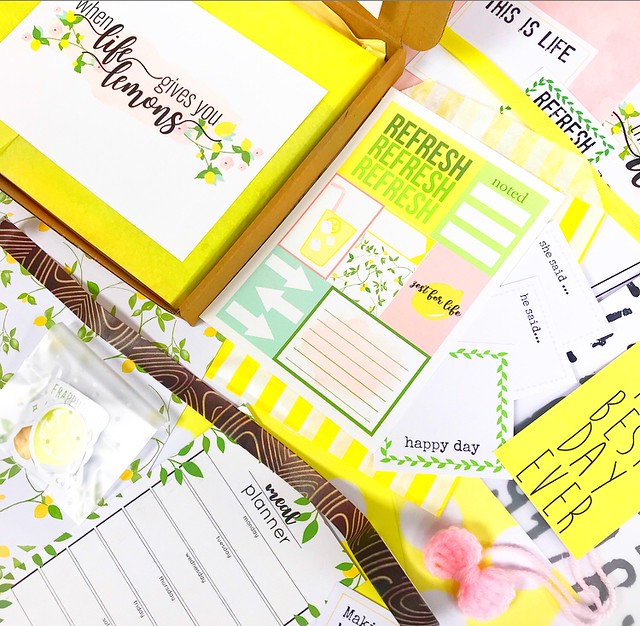 when
life
gives you
lemons
THIS IS LIFE
REFRESH
REFRESH
REFRESH
REFRESH
noted
zest for life
she said...
he said...
happy day
BEST
DAY
EVER
meal
planner
monday
tuesday
wednesday
thursday
friday